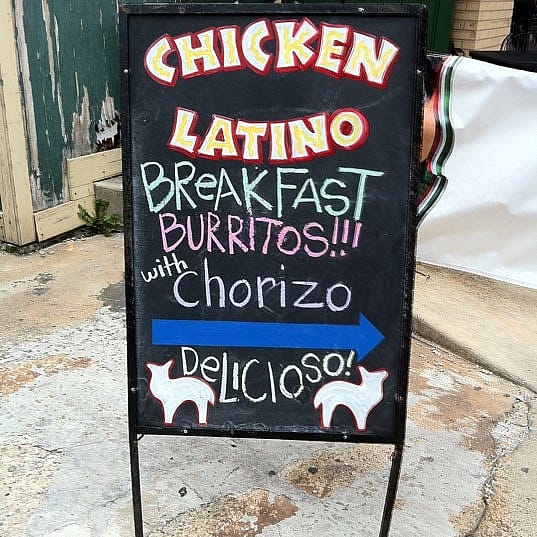 CHICKEN
LATINO
BREAKFAST
BURRITOS!!!
with Chorizo
DeLICIOSO!